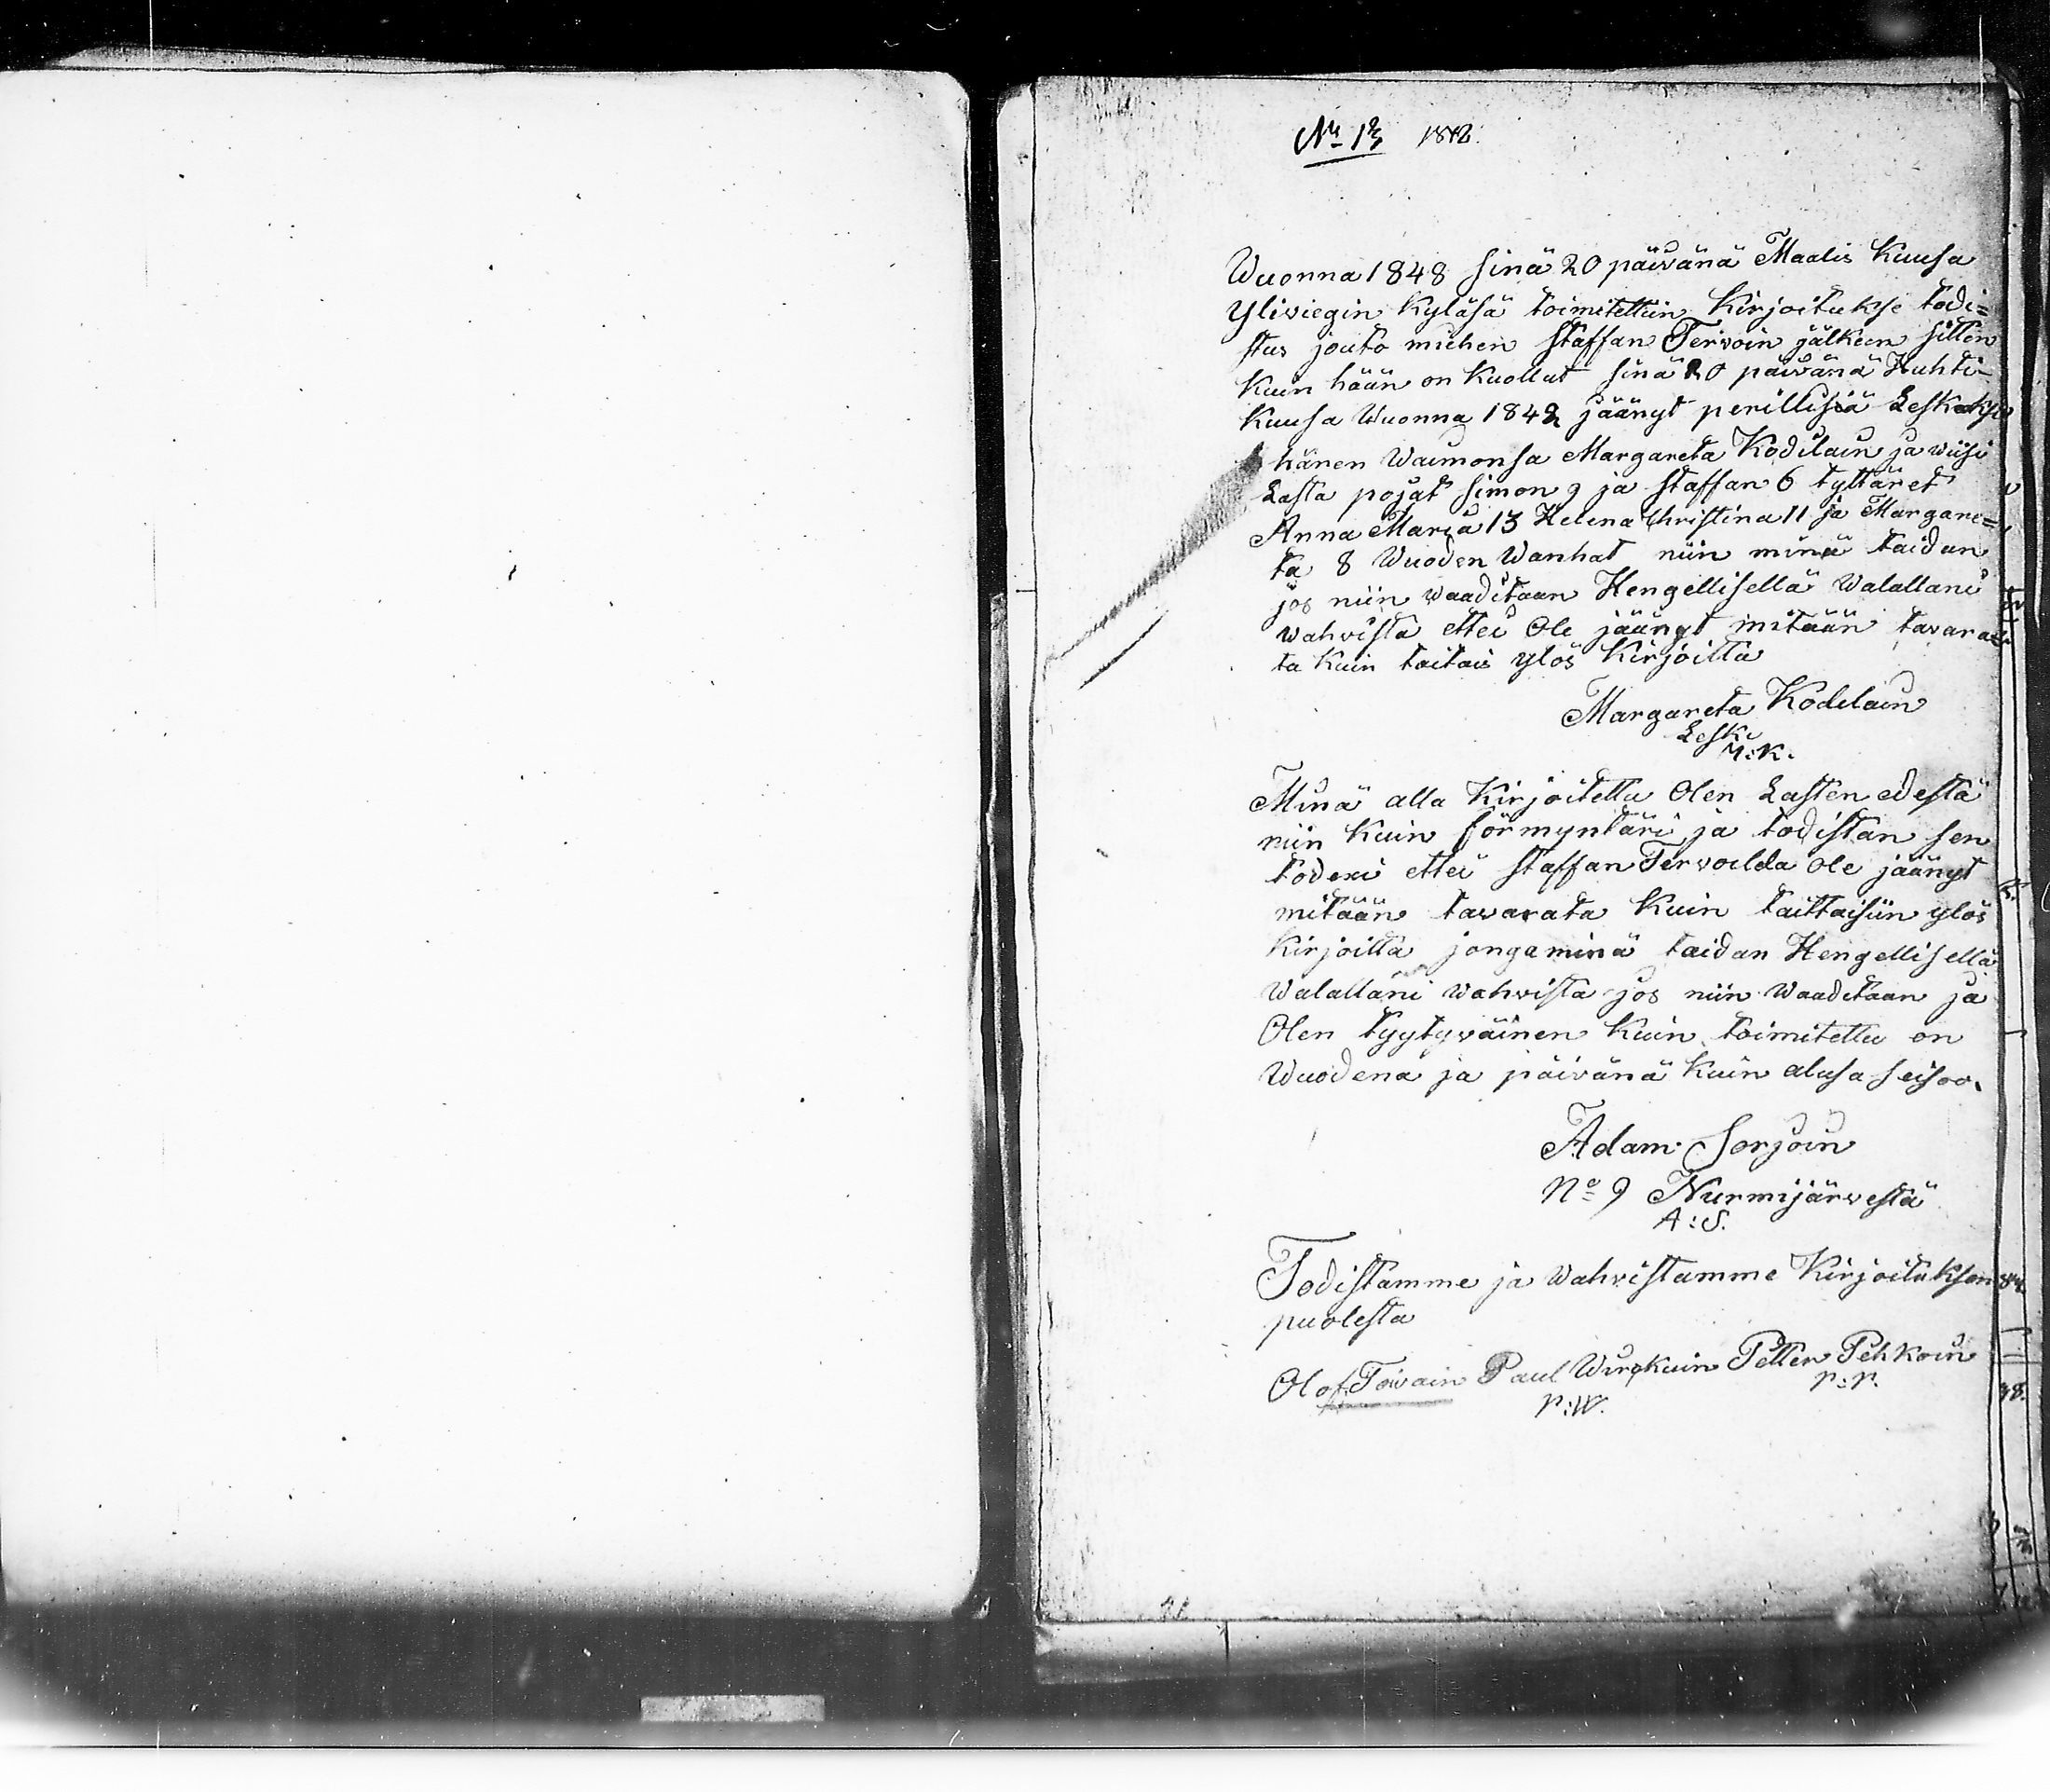 1842.
Wuonna 1848 sinä 20 päivänä Maalis kuusa
Yliviegin kyläsä toimitettiin kirjoitukse todi=
stus jouto miehen Staffan Tervoin jälkeen sitten
kuin hään on kuollut sinä 20 päivänä Huhti-
kuusa Wuonna 1842 jäänyt perillisiä Leskeksi
hänen Waimonsa Margareta Kodilain ja wiisi
Lasta pojat Simon 9 ja Staffan 6 tyttäret
Anna Maria 13 Helena Christina 11 ja Margare=
ta 8 Wuoden Wanhat niin minä taidan
jos niin waaditaan Hengellisellä Walallani
wahvista ettei Ole jäänyt mitään tavara=
ta kuin taitais ylös kirjoitta
Margareta Kodilain
Leski
M:K.
Minä alla kirjoitettu Olen Lasten edestä
niin kuin förmyntäri ja todistan sen
todexi ettei Staffan Tervoilda ole jäänyt
mitään tawarata kuin taittaisiin ylös
kirjoitta jonga minä taidan Hengellisellä
Walallani wahvista jos niin waaditaan ja
Olen tyytyväinen kuin toimitettu on
Wuodena ja päivänä kuin alusa seisoo.
Adam Sorjoin
No 9 Nurmijärvestä
A:S.
Todistamme ja wahvistamme kirjoituksen
puolesta
Olof Toivain Paul Wirkuin Petter Pehkoin
P:W. P:P.